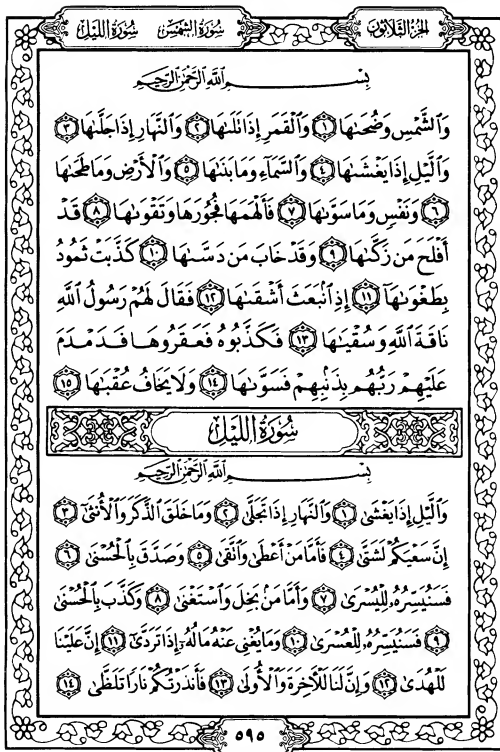 الجزء الثلاثون سورة الشمس سورة الليل
بِسْمِ اللَّهِ الرَّحْمَٰنِ الرَّحِيمِ
وَالشَّمْسِ وَضُحَىٰهَا ١ وَالْقَمَرِ إِذَا تَلَىٰهَا ٢ وَالنَّهَارِ إِذَا جَلَّىٰهَا ٣
وَالَّيْلِ إِذَا يَغْشَىٰهَا ٤ وَالسَّمَاءِ وَمَا بَنَىٰهَا ٥ وَالْأَرْضِ وَمَا طَحَىٰهَا
٦ وَنَفْسٍ وَمَا سَوَّىٰهَا ٧ فَأَلْهَمَهَا فُجُورَهَا وَتَقْوَىٰهَا ٨ قَدْ
أَفْلَحَ مَن زَكَّىٰهَا ٩ وَقَدْ خَابَ مَن دَسَّىٰهَا ١٠ كَذَّبَتْ ثَمُودُ
بِطَغْوَىٰهَا ١١ إِذِ انۢبَعَثَ أَشْقَىٰهَا ١٢ فَقَالَ لَهُمْ رَسُولُ اللَّهِ
نَاقَةَ اللَّهِ وَسُقْيَٰهَا ١٣ فَكَذَّبُوهُ فَعَقَرُوهَا فَدَمْدَمَ
عَلَيْهِمْ رَبُّهُم بِذَنۢبِهِمْ فَسَوَّىٰهَا ١٤ وَلَا يَخَافُ عُقْبَٰهَا ١٥
سُورَةُ اللَّيْلِ
بِسْمِ اللَّهِ الرَّحْمَٰنِ الرَّحِيمِ
وَالَّيْلِ إِذَا يَغْشَىٰ ١ وَالنَّهَارِ إِذَا تَجَلَّىٰ ٢ وَمَا خَلَقَ الذَّكَرَ وَالْأُنثَىٰ ٣
إِنَّ سَعْيَكُمْ لَشَتَّىٰ ٤ فَأَمَّا مَنْ أَعْطَىٰ وَاتَّقَىٰ ٥ وَصَدَّقَ بِالْحُسْنَىٰ ٦
فَسَنُيَسِّرُهُۥ لِلْيُسْرَىٰ ٧ وَأَمَّا مَنۢ بَخِلَ وَاسْتَغْنَىٰ ٨ وَكَذَّبَ بِالْحُسْنَىٰ
٩ فَسَنُيَسِّرُهُۥ لِلْعُسْرَىٰ ١٠ وَمَا يُغْنِي عَنْهُ مَالُهُۥ إِذَا تَرَدَّىٰ ١١ إِنَّ عَلَيْنَا
لَلْهُدَىٰ ١٢ وَإِنَّ لَنَا لَلْآخِرَةَ وَالْأُولَىٰ ١٣ فَأَنذَرْتُكُمْ نَارًا تَلَظَّىٰ ١٤
٥٩٥